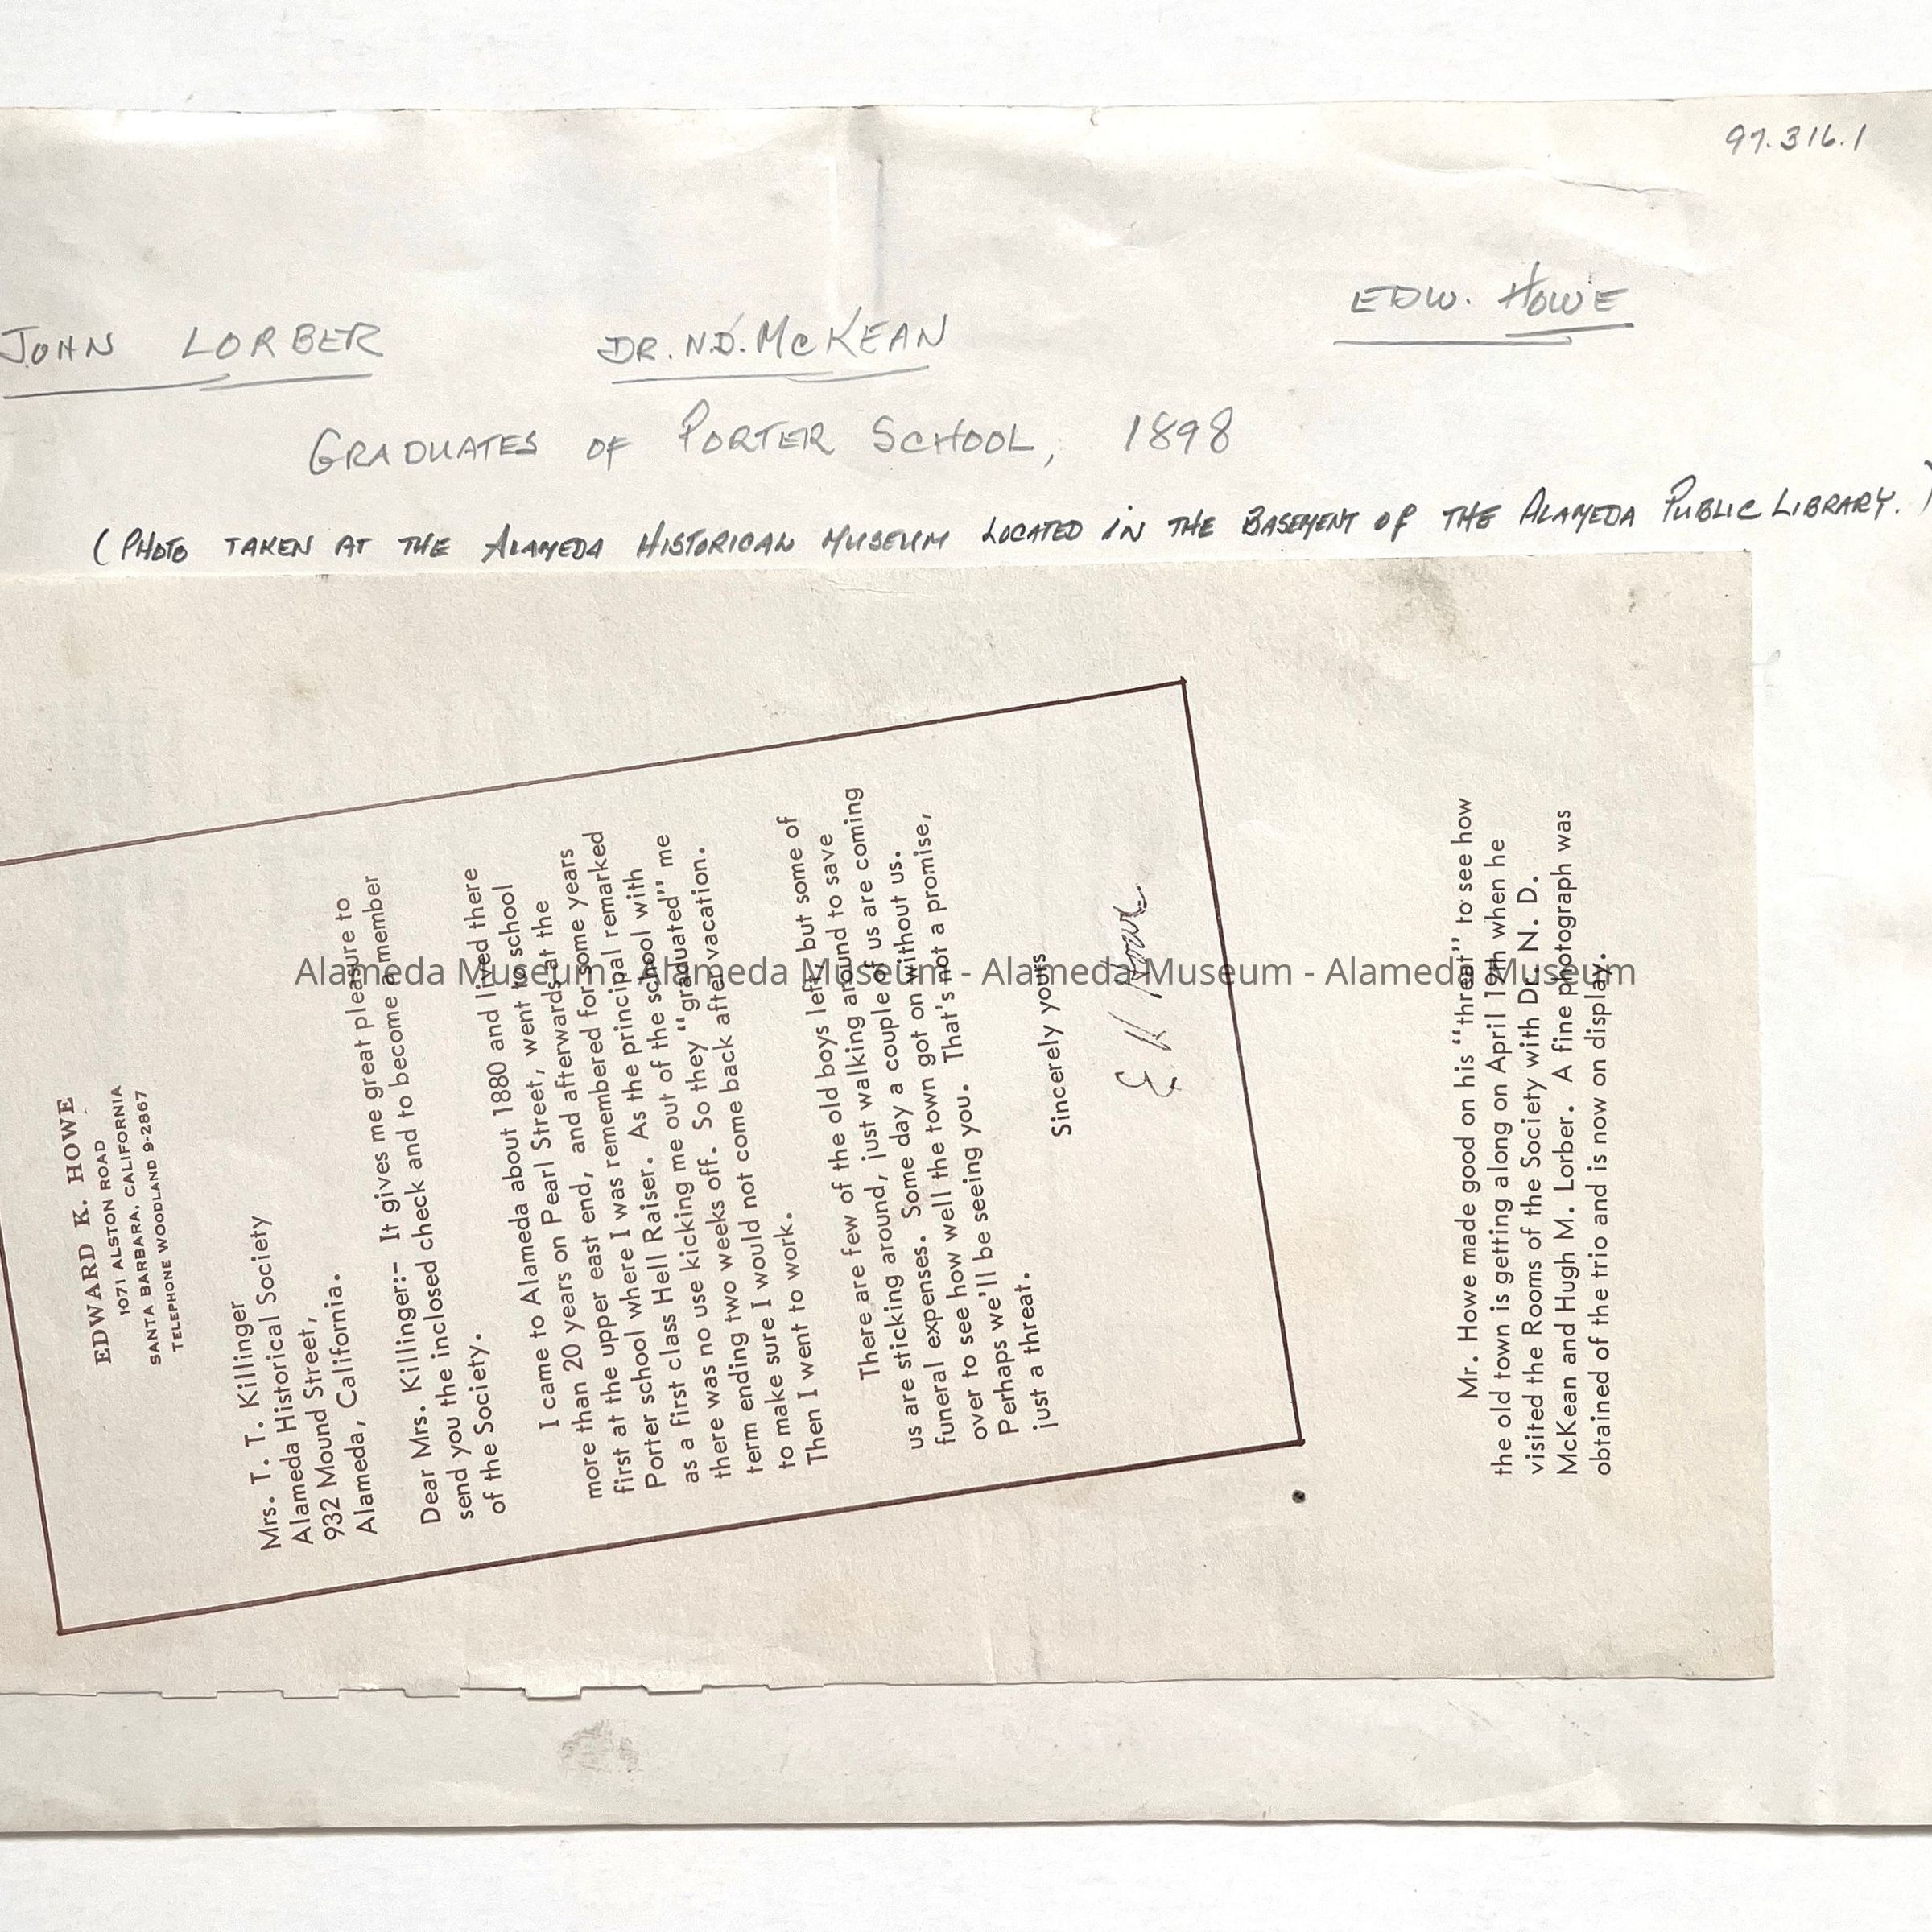 97.316.1
JOHN LORBER DR. N.D. McKEAN EDW. HOWE
GRADUATES OF PORTER SCHOOL, 1898
(PHOTO TAKEN AT THE ALAMEDA HISTORICAL MUSEUM LOCATED IN THE BASEMENT OF THE ALAMEDA PUBLIC LIBRARY.)
EDWARD K. HOWE
1071 ALSTON ROAD
SANTA BARBARA, CALIFORNIA
TELEPHONE WOODLAND 9-2867
Mrs. T. T. Killinger
Alameda Historical Society
932 Mound Street,
Alameda, California.
Dear Mrs. Killinger:- It gives me great pleasure to
send you the inclosed check and to become a member
of the Society.
I came to Alameda about 1880 and lived there
more than 20 years on Pearl Street, went to school
first at the upper east end, and afterwards at the
Porter school where I was remembered for some years
as a first class Hell Raiser. As the principal remarked
there was no use kicking me out of the school with
term ending two weeks off. So they "graduated" me
to make sure I would not come back after vacation.
Then I went to work.
There are few of the old boys left, but some of
us are sticking around, just walking around to save
funeral expenses. Some day a couple of us are coming
over to see how well the town got on without us.
Perhaps we'll be seeing you. That's not a promise,
just a threat.
Sincerely yours
E K Howe
Mr. Howe made good on his "threat" to see how
the old town is getting along on April 19th when he
visited the Rooms of the Society with Dr. N. D.
McKean and Hugh M. Lorber. A fine photograph was
obtained of the trio and is now on display.
Alameda Museum - Alameda Museum - Alameda Museum - Alameda Museum